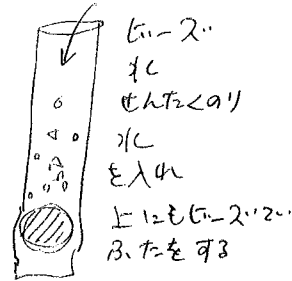 ビーズ
水
せんたくのり
水
を入れ
上にもビーズで
ふたをする